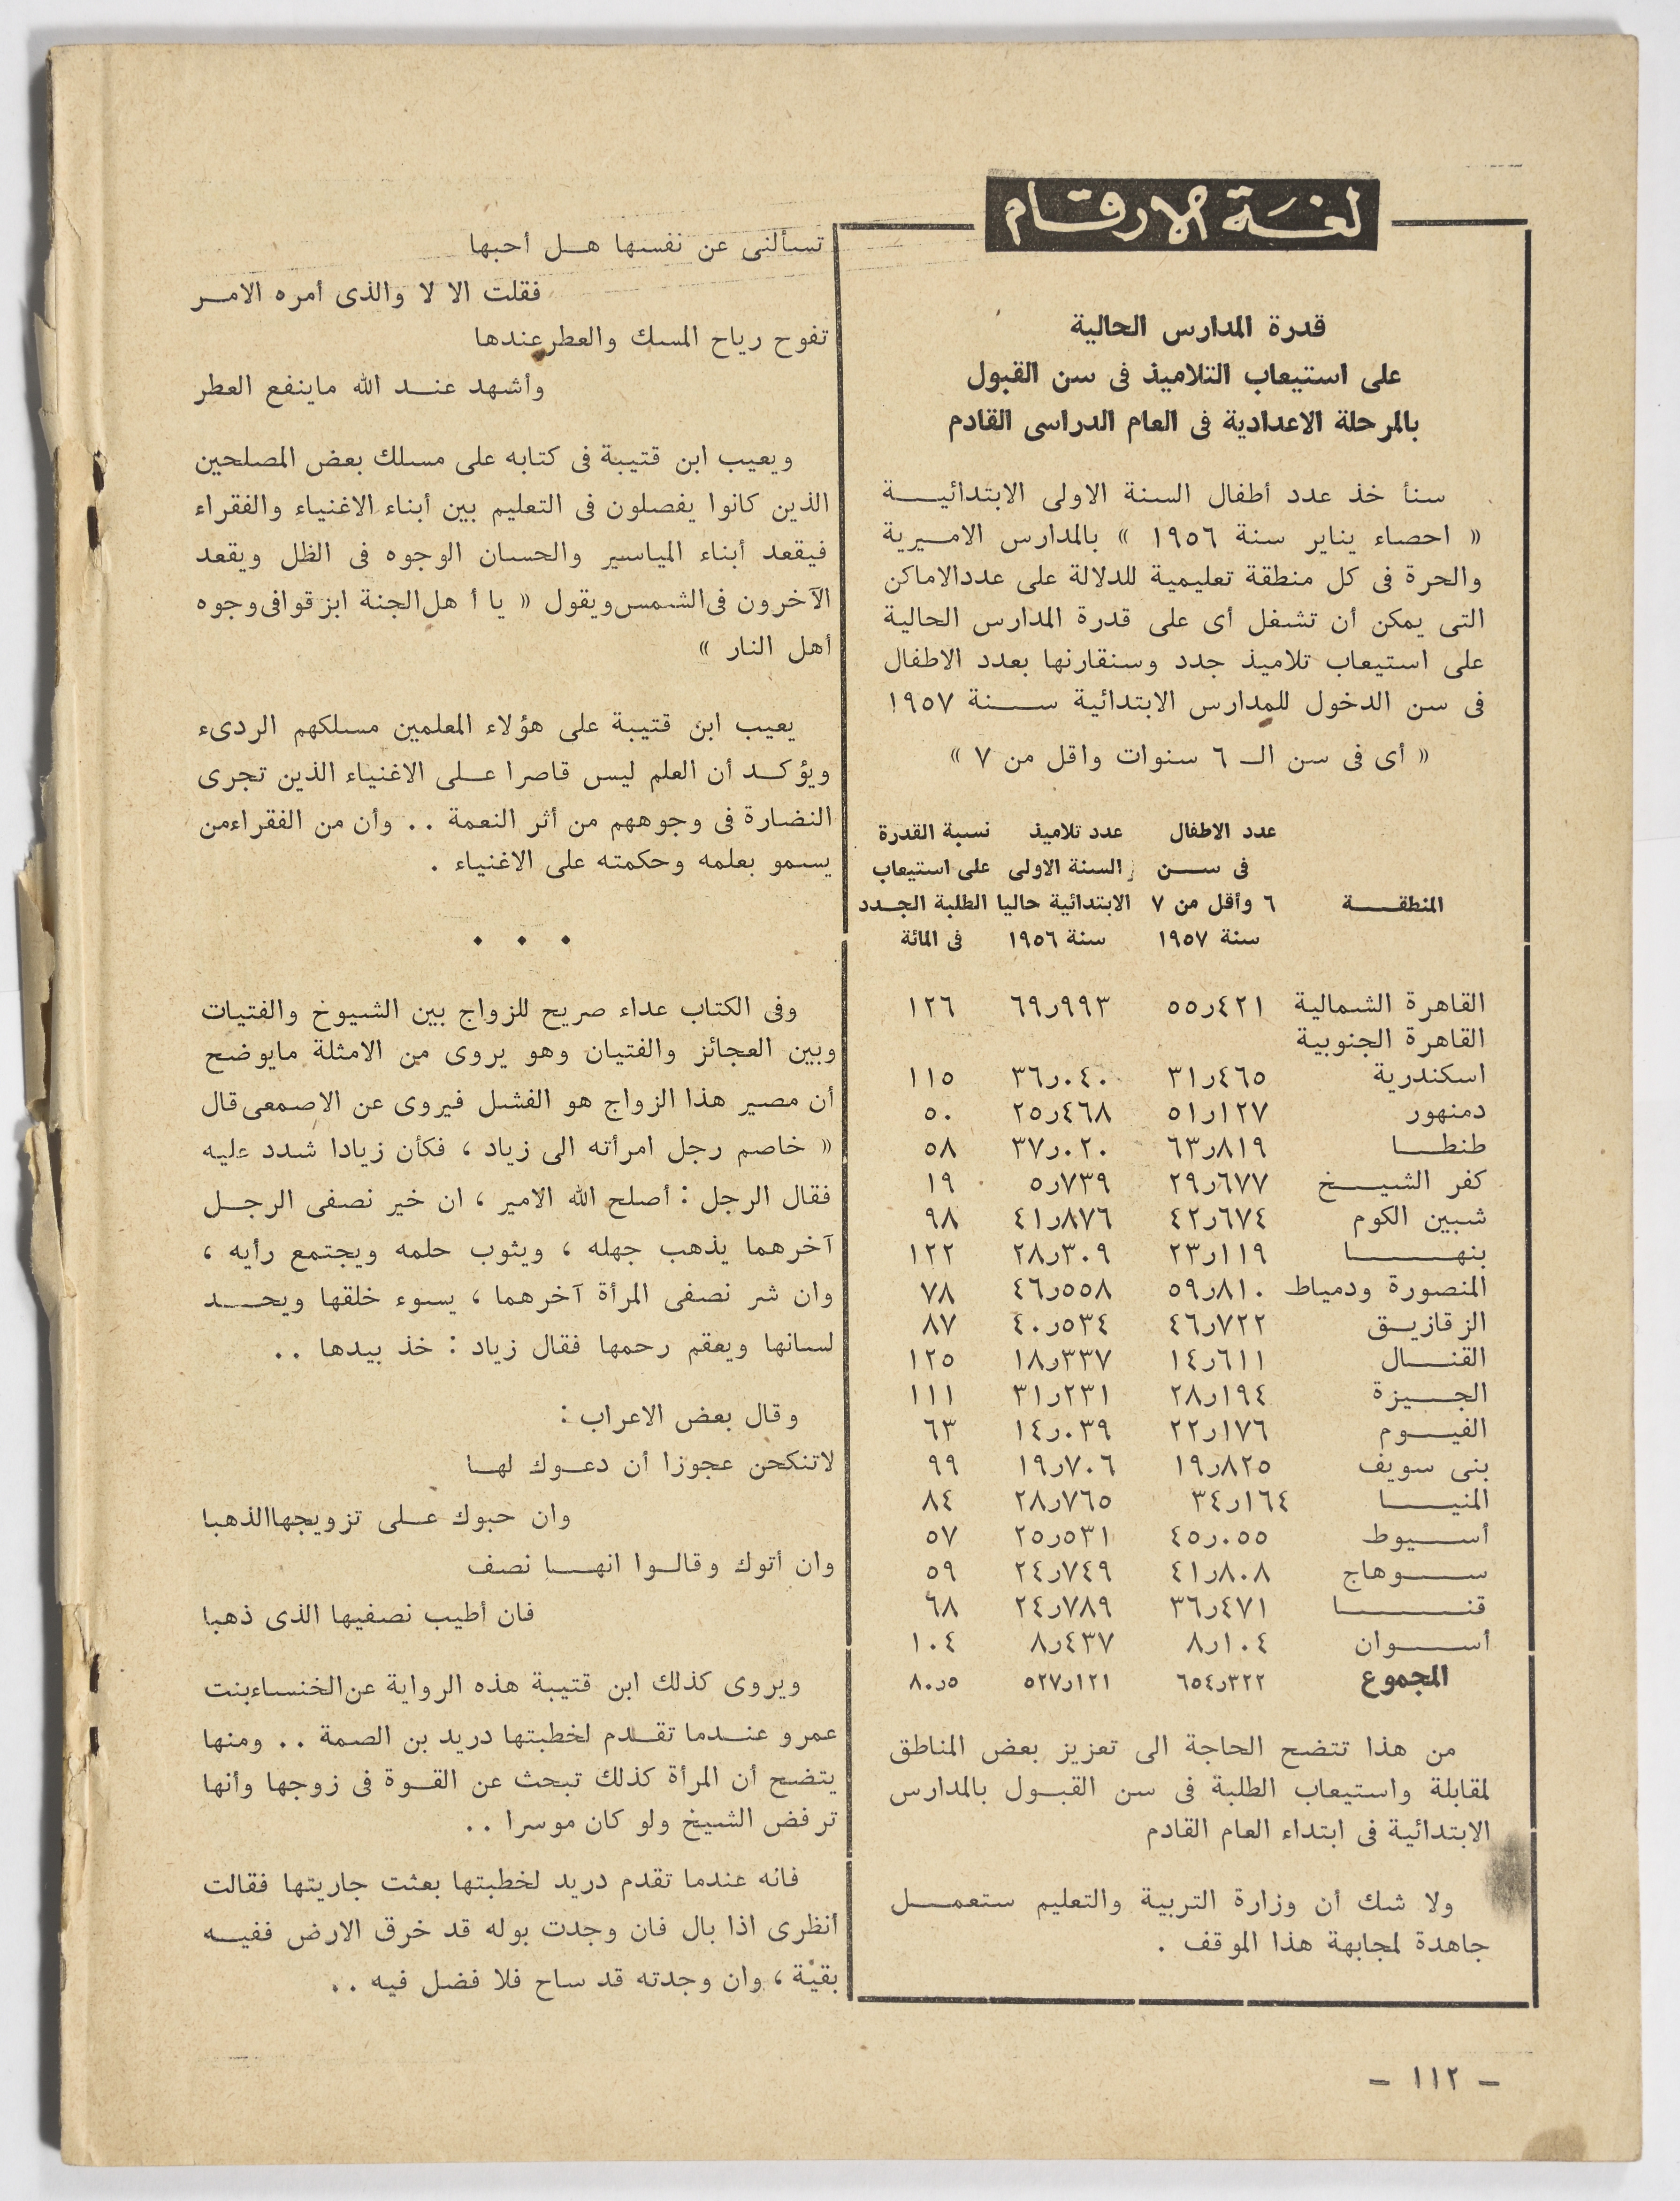 لغة الارقام
قدرة المدارس الحالية
على استيعاب التلاميذ فى سن القبول
بالمرحلة الاعدادية فى العام الدراسى القادم
سنأ خذ عدد أطفال السنة الاولى الابتدائية
« احصاء يناير سنة ١٩٥٦ » بالمدارس الاميرية
والحرة فى كل منطقة تعليمية للدلالة على عددالاماكن
التى يمكن أن تشغل أى على قدرة المدارس الحالية
على استيعاب تلاميذ جدد وسنقارنها بعدد الاطفال
فى سن الدخول للمدارس الابتدائية سنة ١٩٥٧
« أى فى سن الـ ٦ سنوات واقل من ٧ »
عدد الاطفال عدد تلاميذ نسبة القدرة
فى سن السنة الاولى على استيعاب
المنطقة ٦ وأقل من ٧ الابتدائية حاليا الطلبة الجدد
سنة ١٩٥٧ سنة ١٩٥٦ فى المائة
القاهرة الشمالية ٥٥ر٤٢١ ٦٩ر٩٩٣ ١٢٦
القاهرة الجنوبية
اسكندرية ٣١ر٤٦٥ ٣٦ر٠٤٠ ١١٥
دمنهور ٥١ر١٢٧ ٢٥ر٤٦٨ ٥٠
طنطا ٦٣ر٨١٩ ٣٧ر٠٢٠ ٥٨
كفر الشيخ ٢٩ر٦٧٧ ٥ر٧٣٩ ١٩
شبين الكوم ٤٢ر٦٧٤ ٤١ر٨٧٦ ٩٨
بنها ٢٣ر١١٩ ٢٨ر٣٠٩ ١٢٢
المنصورة ودمياط ٥٩ر٨١٠ ٤٦ر٥٥٨ ٧٨
الزقازيق ٤٦ر٧٢٢ ٤٠ر٥٣٤ ٨٧
القنال ١٤ر٦١١ ١٨ر٣٣٧ ١٢٥
الجيزة ٢٨ر١٩٤ ٣١ر٢٣١ ١١١
الفيوم ٢٢ر١٧٦ ١٤ر٠٣٩ ٦٣
بنى سويف ١٩ر٨٢٥ ١٩ر٧٠٦ ٩٩
المنيا ٣٤ر١٦٤ ٢٨ر٧٦٥ ٨٤
أسيوط ٤٥ر٠٥٥ ٢٥ر٥٣١ ٥٧
سوهاج ٤١ر٨٠٨ ٢٤ر٧٤٩ ٥٩
قنا ٣٦ر٤٧١ ٢٤ر٧٨٩ ٦٨
أسوان ٨ر١٠٤ ٨ر٤٣٧ ١٠٤
المجموع ٦٥٤ر٣٢٢ ٥٢٧ر١٢١ ٨٠ر٥
من هذا تتضح الحاجة الى تعزيز بعض المناطق
لمقابلة واستيعاب الطلبة فى سن القبول بالمدارس
الابتدائية فى ابتداء العام القادم
ولا شك أن وزارة التربية والتعليم ستعمل
جاهدة لمجابهة هذا الموقف .
تسألنى عن نفسها هل أحبها
فقلت الا لا والذى أمره الامر
تفوح رياح المسك والعطرعندها
وأشهد عند الله ماينفع العطر
ويعيب ابن قتيبة فى كتابه على مسلك بعض المصلحين
الذين كانوا يفصلون فى التعليم بين أبناء الاغنياء والفقراء
فيقعد أبناء المياسير والحسان الوجوه فى الظل ويقعد
الآخرون فى الشمس ويقول « يا أ هل الجنة ابزقوا فى وجوه
أهل النار »
يعيب ابن قتيبة على هؤلاء المعلمين مسلكهم الردىء
ويؤكد أن العلم ليس قاصرا على الاغنياء الذين تجرى
النضارة فى وجوههم من أثر النعمة .. وأن من الفقراءمن
يسمو بعلمه وحكمته على الاغنياء .
• • •
وفى الكتاب عداء صريح للزواج بين الشيوخ والفتيات
وبين العجائز والفتيان وهو يروى من الامثلة مايوضح
أن مصير هذا الزواج هو الفشل فيروى عن الاصمعى قال
« خاصم رجل امرأته الى زياد ، فكأن زيادا شدد عليه
فقال الرجل : أصلح الله الامير ، ان خير نصفى الرجل
آخرهما يذهب جهله ، ويثوب حلمه ويجتمع رأيه ،
وان شر نصفى المرأة آخرهما ، يسوء خلقها ويحد
لسانها ويعقم رحمها فقال زياد : خذ بيدها ..
وقال بعض الاعراب :
لاتنكحن عجوزا أن دعوك لها
وان حبوك على تزويجهاالذهبا
وان أتوك وقالوا انها نصف
فان أطيب نصفيها الذى ذهبا
ويروى كذلك ابن قتيبة هذه الرواية عن الخنساءبنت
عمرو عندما تقدم لخطبتها دريد بن الصمة .. ومنها
يتضح أن المرأة كذلك تبحث عن القوة فى زوجها وأنها
ترفض الشيخ ولو كان موسرا ..
فانه عندما تقدم دريد لخطبتها بعثت جاريتها فقالت
أنظرى اذا بال فان وجدت بوله قد خرق الارض ففيه
بقية ، وان وجدته قد ساح فلا فضل فيه ..
– ١١٢ –